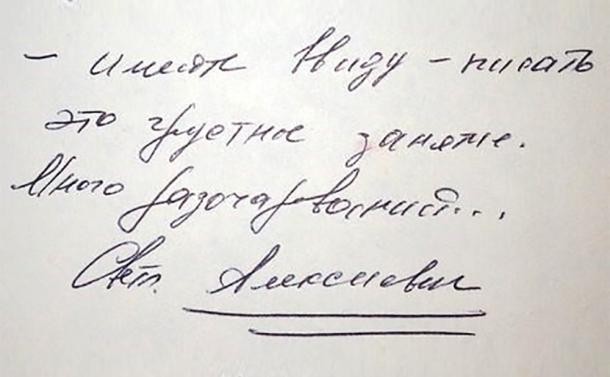 - имейте ввиду - писать
это грустное занятие.
Много разочарований...
Свет. Алексиевич